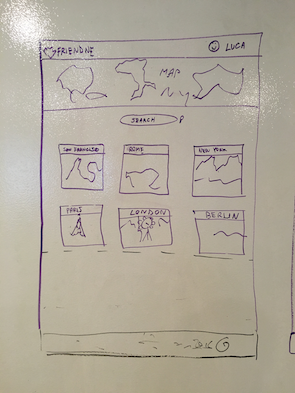 FRIENDNE
LUCA
MAP
N.Y.
SEARCH
SAN FRANCISCO
ROME
NEW YORK
PARIS
LONDON
BERLIN